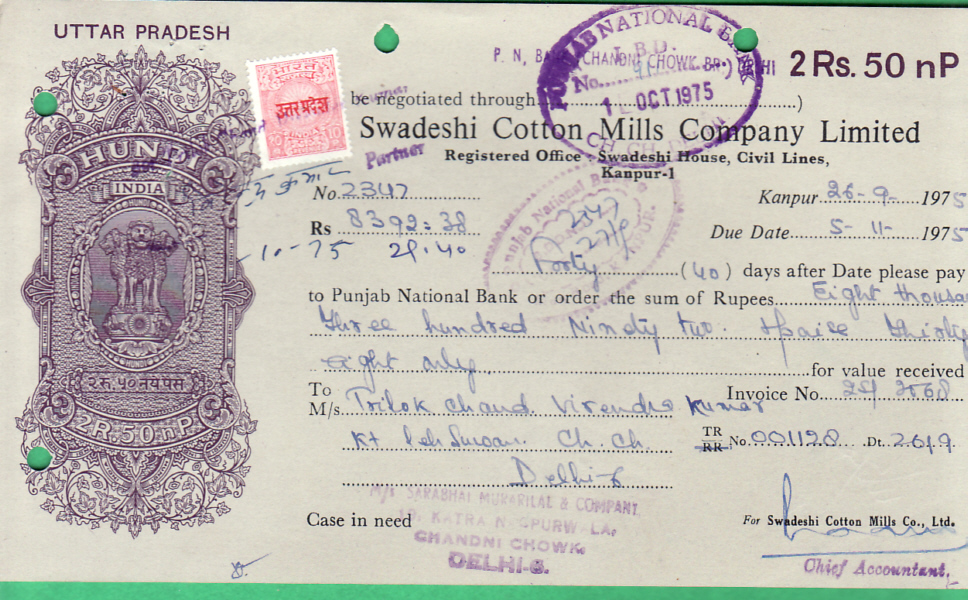 UTTAR PRADESH
HUNDI
INDIA
२ रु. ५० नये पैसे
2 R. 50 nP
भारत
उत्तर प्रदेश
10
Partner
PUNJAB NATIONAL BANK
I. B. D.
No.
1 OCT 1975
P. N. BANK CHANDNI CHOWK BR.
2 Rs. 50 nP
be negotiated through )
Swadeshi Cotton Mills Company Limited
Registered Office : Swadeshi House, Civil Lines,
Kanpur-1
No. 2347
Kanpur 26-9- 1975
Rs 8392=38
Due Date 5-11- 1975
10-75 29.40
Punjab National Bank
2347
Forty (40) days after Date please pay
to Punjab National Bank or order the sum of Rupees Eight thousan
Three hundred Ninety two & paise thirty
eight only for value received
To
Invoice No.
M/s. Trilok Chand Virendra Kumar
Ch. Ch.
TR
RR No 001128 Dt. 26/9
Delhi-6
M/s SARABHAI MURARILAL & COMPANY
KATRA
CHANDNI CHOWK.
DELHI-6.
Case in need
For Swadeshi Cotton Mills Co., Ltd.
Chief Accountant.